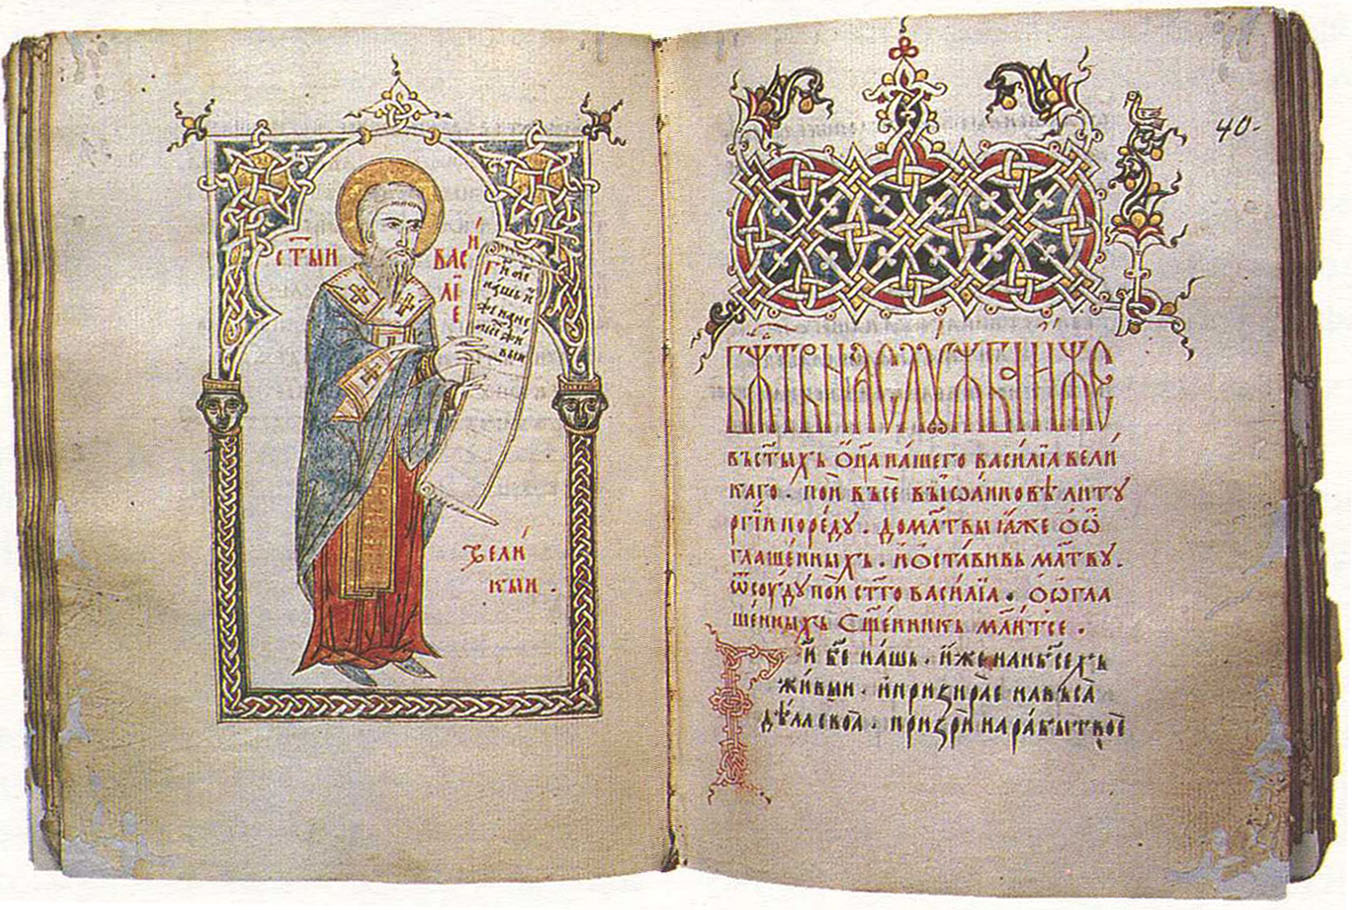 ст҃ыи
васи
лїе
Г҃и б҃е
нашь и
вели
кыи .
40.
бж҃ствьнаа слꙋжба иже
въ ст҃ыхъ ѻц҃а нашего василїа вели
каго . пои въсе въ иѡанновѣ литꙋ
ргїи по редꙋ . до мл҃твы ꙗже ѻ ѡ
глашенныхъ . и ѡставивь мл҃твꙋ .
ѿсꙋдꙋ пои ст҃го василїа . ѻ ѡгла
шенныхъ сщ҃енникъ мл҃итсе .
Г҃и б҃е нашь . иже на нб҃сехъ
живыи . и призирае на въса
дѣла своа . призри на рабы твое